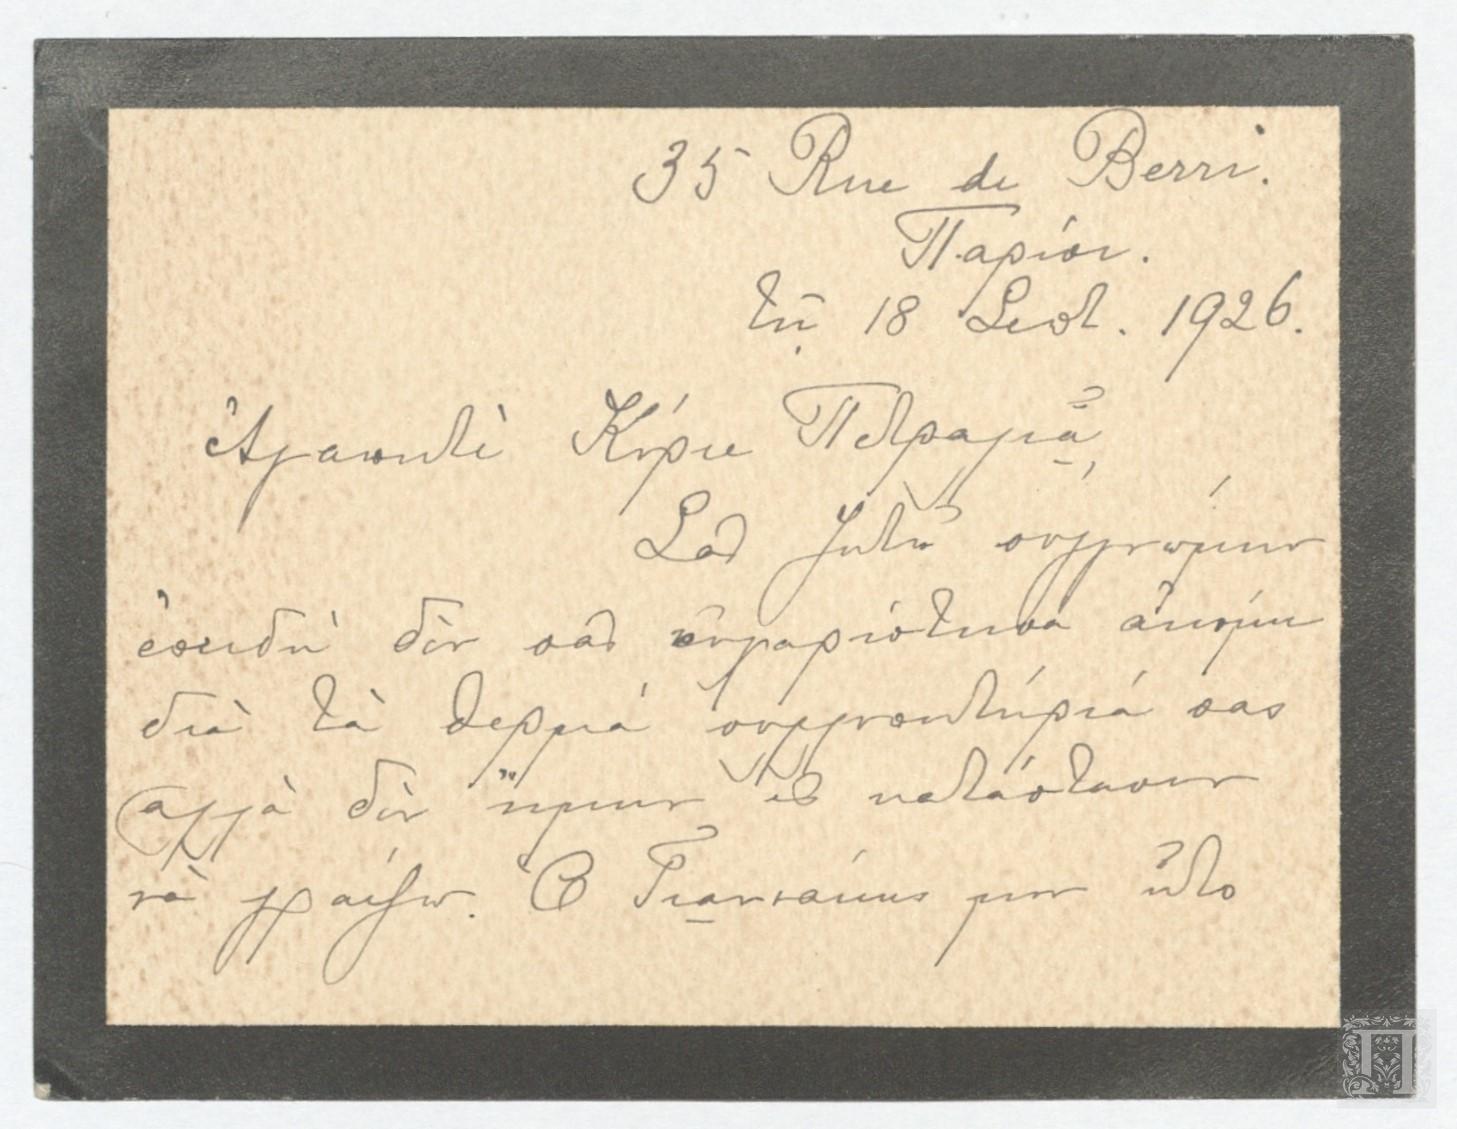 35 Rue de Berri.
Παρίσι.
τῇ 18 Σεπτ. 1926.
Ἀγαπητὲ Κύριε
Σᾶς ζητῶ συγγνώμην
ἐπειδὴ δὲν σᾶς εὐχαρίστησα ἀκόμη
διὰ τὰ θερμά συλλυπητήριά σας
ἀλλὰ δὲν ἤμην εἰς κατάστασιν
νὰ γράψω. Ὁ Γιαννάκης μου ἦτο